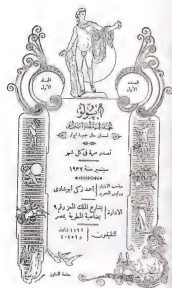 المجلد
الأول
العدد
الأول
أپولو
لسان حال جمعية أپولو
تصدر مرة في كل شهر
سبتمبر سنة ١٩٣٢
صاحب الامتياز
ورئيس التحرير
أحمد زكي أبو شادي
الادارة
بشارع الملك المعز رقم ٩
بضاحية المطرية بمصر
التليفون